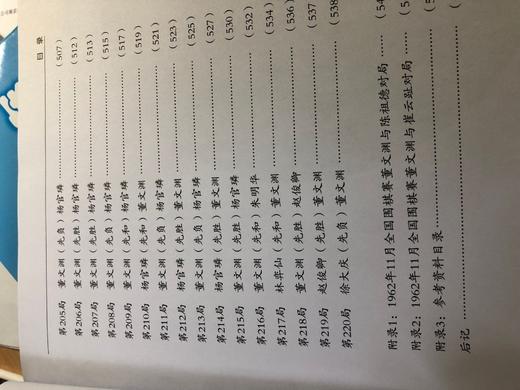 目 录
第205局 董文渊（先负）杨官璘 ……………（507）
第206局 董文渊（先胜）杨官璘 ……………（512）
第207局 董文渊（先胜）杨官璘 ……………（513）
第208局 董文渊（先负）杨官璘 ……………（515）
第209局 董文渊（先和）杨官璘 ……………（517）
第210局 杨官璘（先和）董文渊 ……………（519）
第211局 董文渊（先负）杨官璘 ……………（521）
第212局 杨官璘（先胜）董文渊 ……………（523）
第213局 董文渊（先负）杨官璘 ……………（525）
第214局 杨官璘（先胜）董文渊 ……………（527）
第215局 董文渊（先胜）杨官璘 ……………（530）
第216局 董文渊（先和）朱明华 ……………（532）
第217局 林弈仙（先和）董文渊 ……………（534）
第218局 董文渊（先胜）赵俊卿 ……………（536）
第219局 赵俊卿（先胜）董文渊 ……………（537）
第220局 徐大庆（先负）董文渊 ……………（538
附录1：1962年11月全国围棋赛董文渊与陈祖德对局 ……（54
附录2：1962年11月全国围棋赛董文渊与崔云趾对局 ……（5
附录3：参考资料目录 ……………（5
后记 ……………（